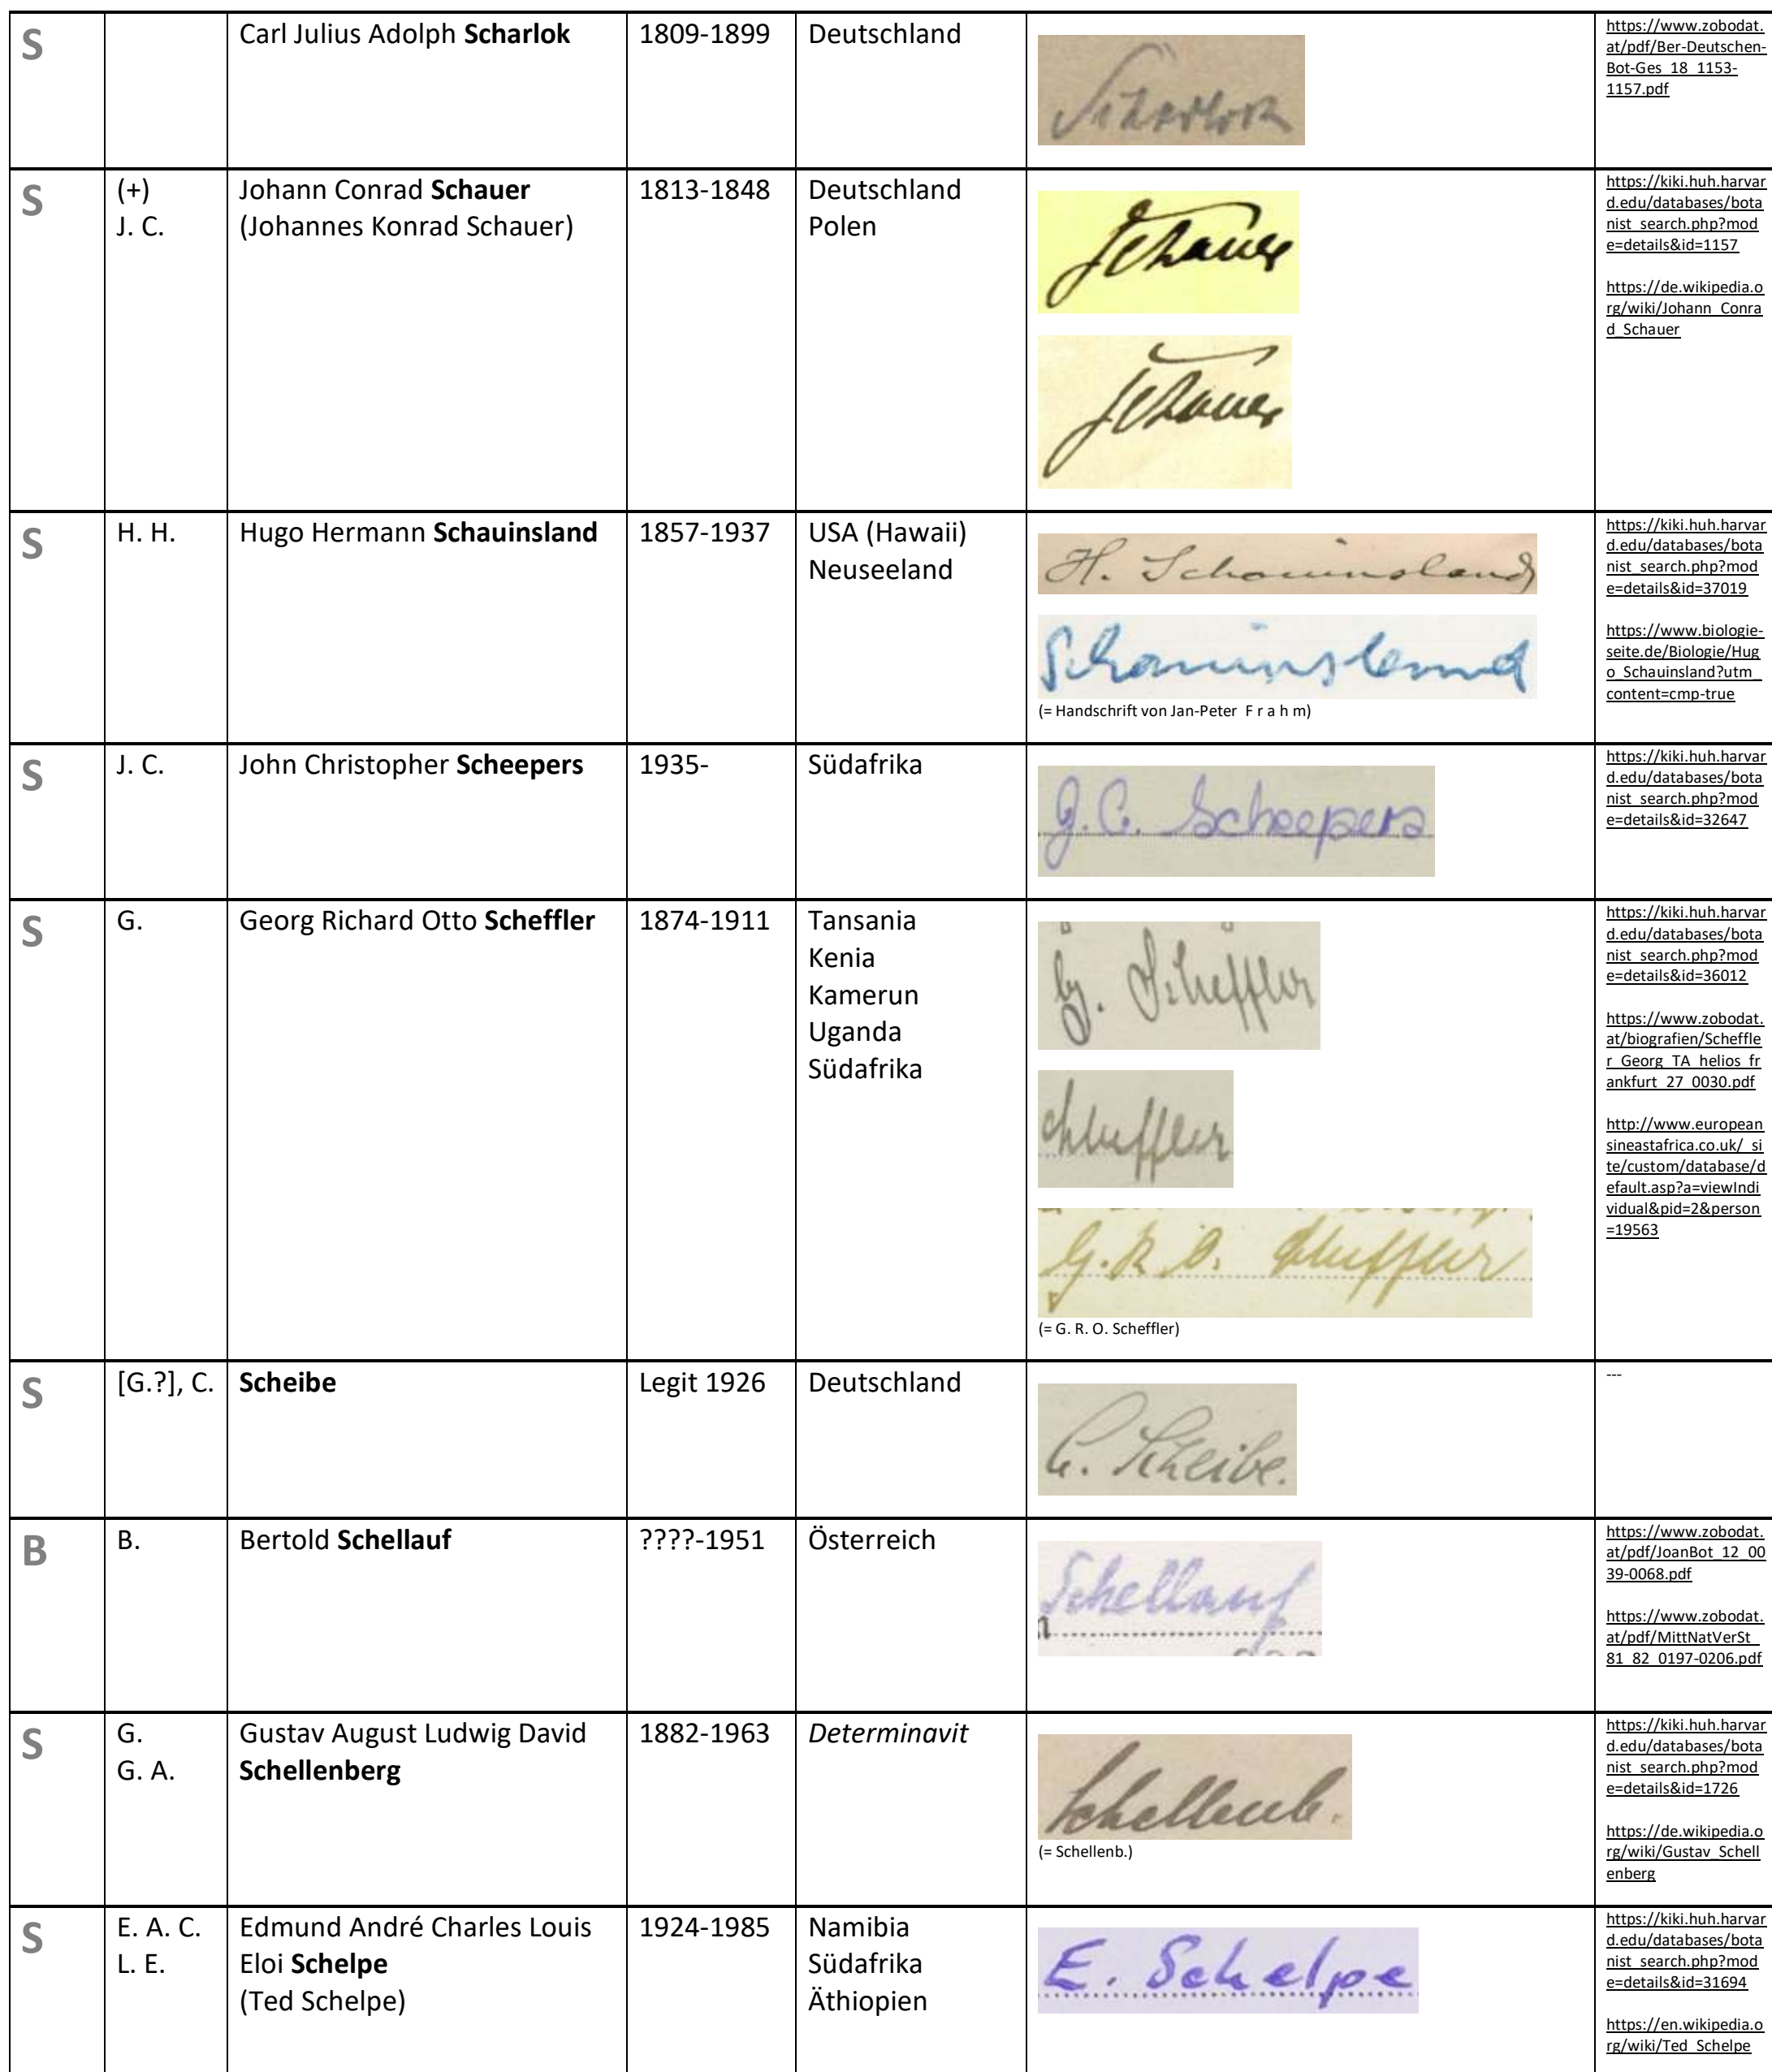 S
Carl Julius Adolph Scharlok
1809-1899
Deutschland
Scharlok
https://www.zobodat.
at/pdf/Ber-Deutschen-
Bot-Ges_18_1153-
1157.pdf
S
(+)
J. C.
Johann Conrad Schauer
(Johannes Konrad Schauer)
1813-1848
Deutschland
Polen
Schauer
Schauer
https://kiki.huh.harvar
d.edu/databases/bota
nist_search.php?mod
e=details&id=1157
https://de.wikipedia.o
rg/wiki/Johann_Conra
d_Schauer
S
H. H.
Hugo Hermann Schauinsland
1857-1937
USA (Hawaii)
Neuseeland
H. Schauinsland
Schauinsland
(= Handschrift von Jan-Peter F r a h m)
https://kiki.huh.harvar
d.edu/databases/bota
nist_search.php?mod
e=details&id=37019
https://www.biologie-
seite.de/Biologie/Hug
o_Schauinsland?utm_
content=cmp-true
S
J. C.
John Christopher Scheepers
1935-
Südafrika
J.C. Scheepers
https://kiki.huh.harvar
d.edu/databases/bota
nist_search.php?mod
e=details&id=32647
S
G.
Georg Richard Otto Scheffler
1874-1911
Tansania
Kenia
Kamerun
Uganda
Südafrika
G. Scheffler
Scheffler
G. R. O. Scheffler
(= G. R. O. Scheffler)
https://kiki.huh.harvar
d.edu/databases/bota
nist_search.php?mod
e=details&id=36012
https://www.zobodat.
at/biografien/Scheffle
r_Georg_TA_helios_fr
ankfurt_27_0030.pdf
http://www.european
sineastafrica.co.uk/_si
te/custom/database/d
efault.asp?a=viewIndi
vidual&pid=2&person
=19563
S
[G.?], C.
Scheibe
Legit 1926
Deutschland
C. Scheibe.
---
B
B.
Bertold Schellauf
????-1951
Österreich
Schellauf
https://www.zobodat.
at/pdf/JoanBot_12_00
39-0068.pdf
https://www.zobodat.
at/pdf/MittNatVerSt_
81_82_0197-0206.pdf
S
G.
G. A.
Gustav August Ludwig David
Schellenberg
1882-1963
Determinavit
Schellenb.
(= Schellenb.)
https://kiki.huh.harvar
d.edu/databases/bota
nist_search.php?mod
e=details&id=1726
https://de.wikipedia.o
rg/wiki/Gustav_Schell
enberg
S
E. A. C.
L. E.
Edmund André Charles Louis
Eloi Schelpe
(Ted Schelpe)
1924-1985
Namibia
Südafrika
Äthiopien
E. Schelpe
https://kiki.huh.harvar
d.edu/databases/bota
nist_search.php?mod
e=details&id=31694
https://en.wikipedia.o
rg/wiki/Ted_Schelpe